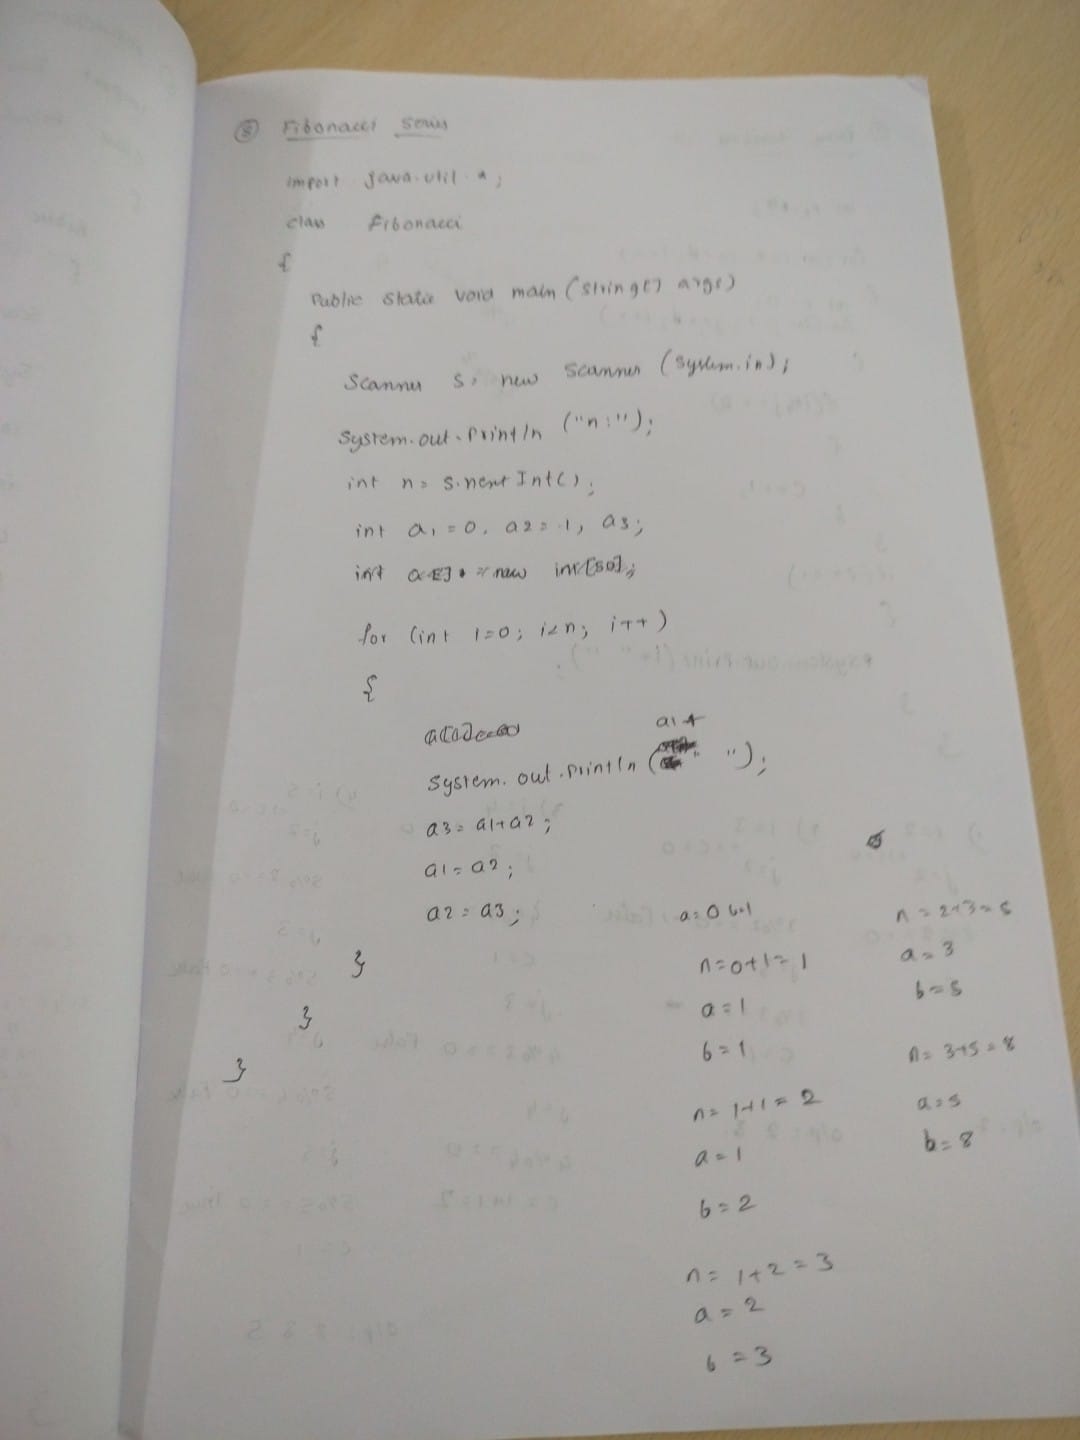 ⑧ Fibonacci Series
import java.util.*;
class Fibonacci
{
Public static void main (string[] args)
{
Scanner s= new Scanner (System.in);
System.out.println ("n:");
int n= s.nextInt();
int a1=0, a2=1, a3;
int a[] = new int[50];
for (int i=0; i<n; i++)
{
a1+
System.out.println ( " ");
a3=a1+a2;
a1=a2;
a2=a3;
}
}
}
a=0 b=1
n=0+1=1
a=1
b=1
n=1+1=2
a=1
b=2
n= 1+2=3
a=2
b=3
n=2+3=5
a=3
b=5
n=3+5=8
a=5
b=8